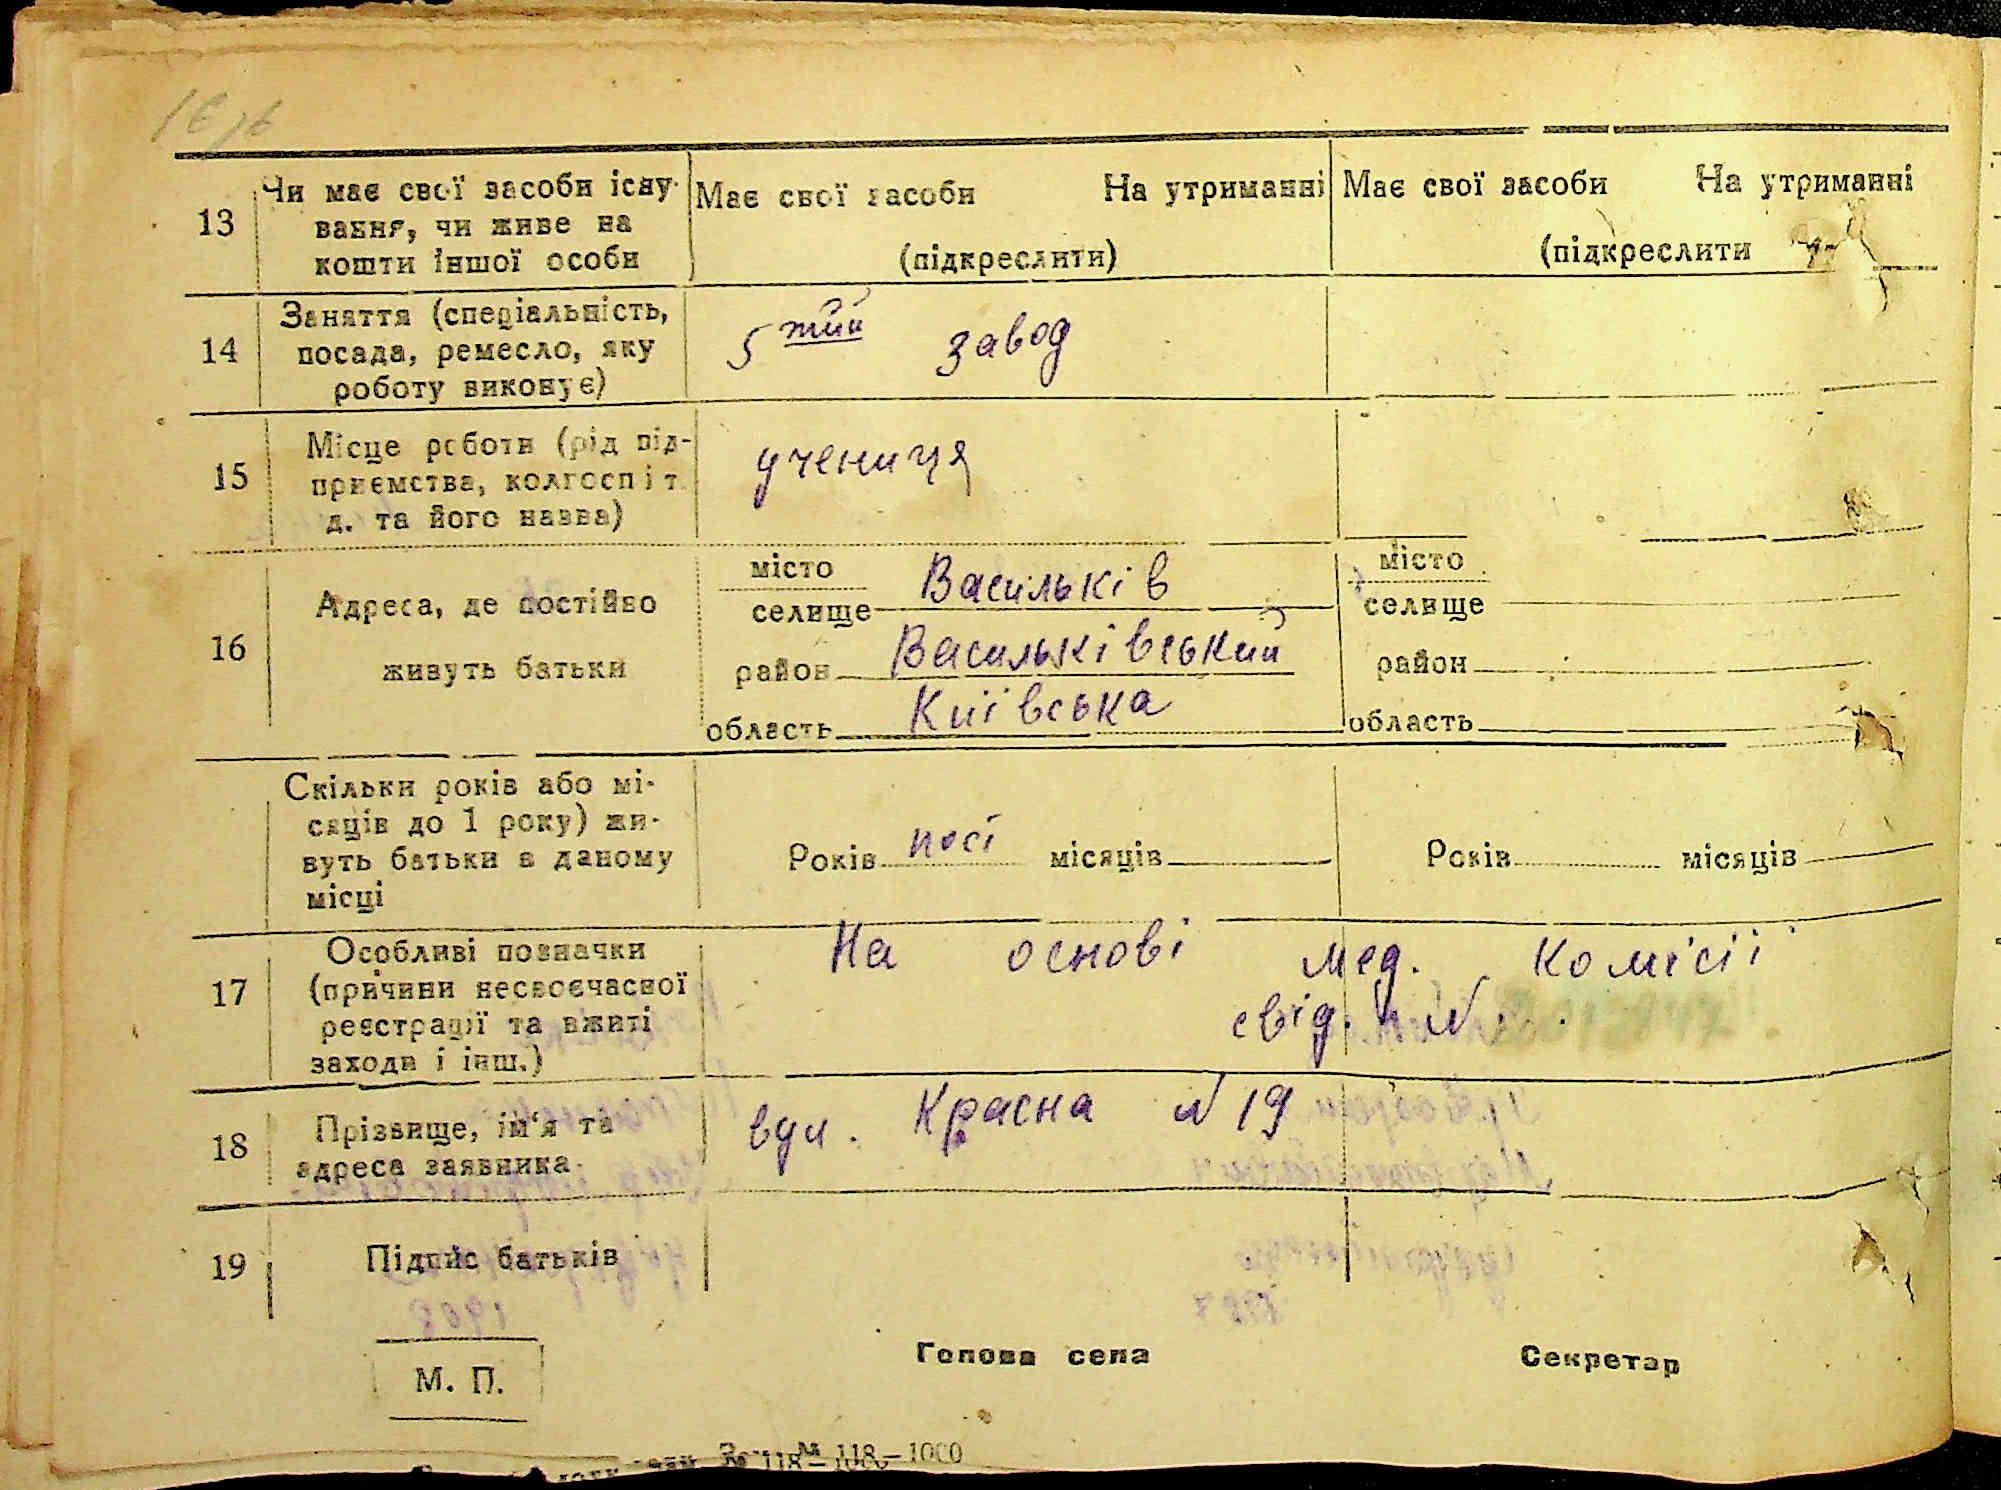 13
Чи має свої засоби існу-
вання, чи живе на
кошти іншої особи
Має свої засоби На утриманні
(підкреслити)
Має свої засоби На утриманні
(підкреслити
14
Заняття (спеціальність,
посада, ремесло, яку
роботу виконує)
5 тий завод
15
Місце роботи (рід під-
приємства, колгосп і т.
д. та його назва)
учениця
16
Адреса, де постійно
живуть батьки
місто
селище Васильків
район Васильківський
область Київська
місто
селище
район
область
Скільки років або мі-
сяців до 1 року) жи-
вуть батьки в даному
місці
Років місяців
Років місяців
17
Особливі позначки
(причини несвоєчасної
реєстрації та вжиті
заходи і інш.)
На основі мед. комісії
свід. №
18
Прізвище, ім'я та
адреса заявника.
вул. Красна № 19
19
Підпис батьків
М. П.
Голова села
Секретар
118—1000